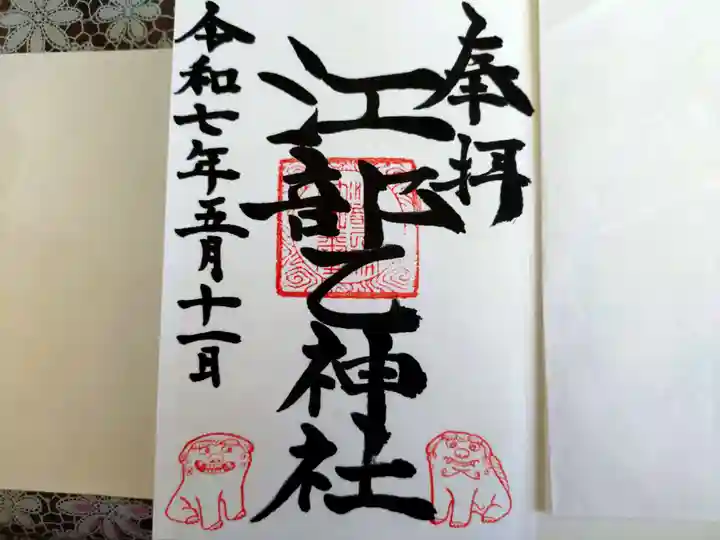 奉拝
江部乙神社
令和七年五月十一日